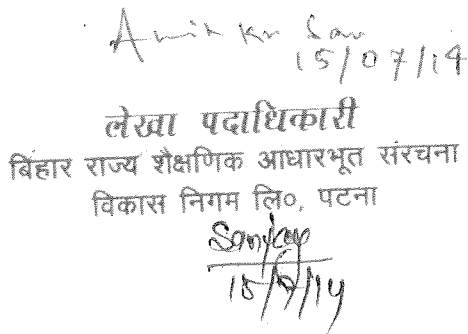 Amit Kr
15/07/14
लेखा पदाधिकारी
बिहार राज्य शैक्षणिक आधारभूत संरचना
विकास निगम लि०, पटना
Sanjay
15/7/14